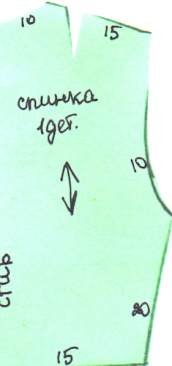 10
15
спинка
1 дет.
10
сгиб
20
15